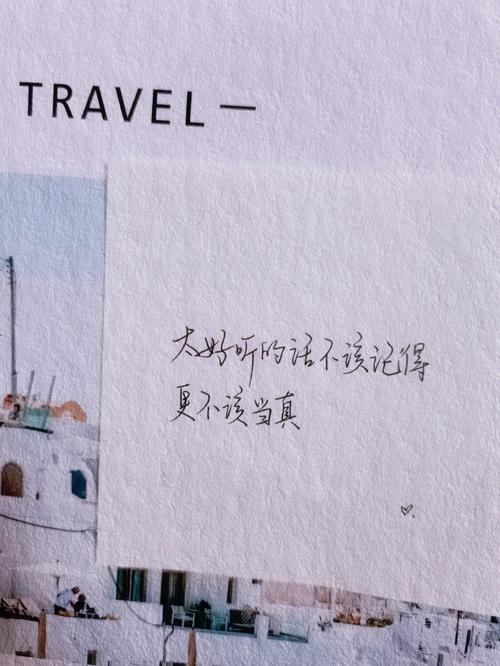 TRAVEL —
太好听的话不该记得
更不该当真